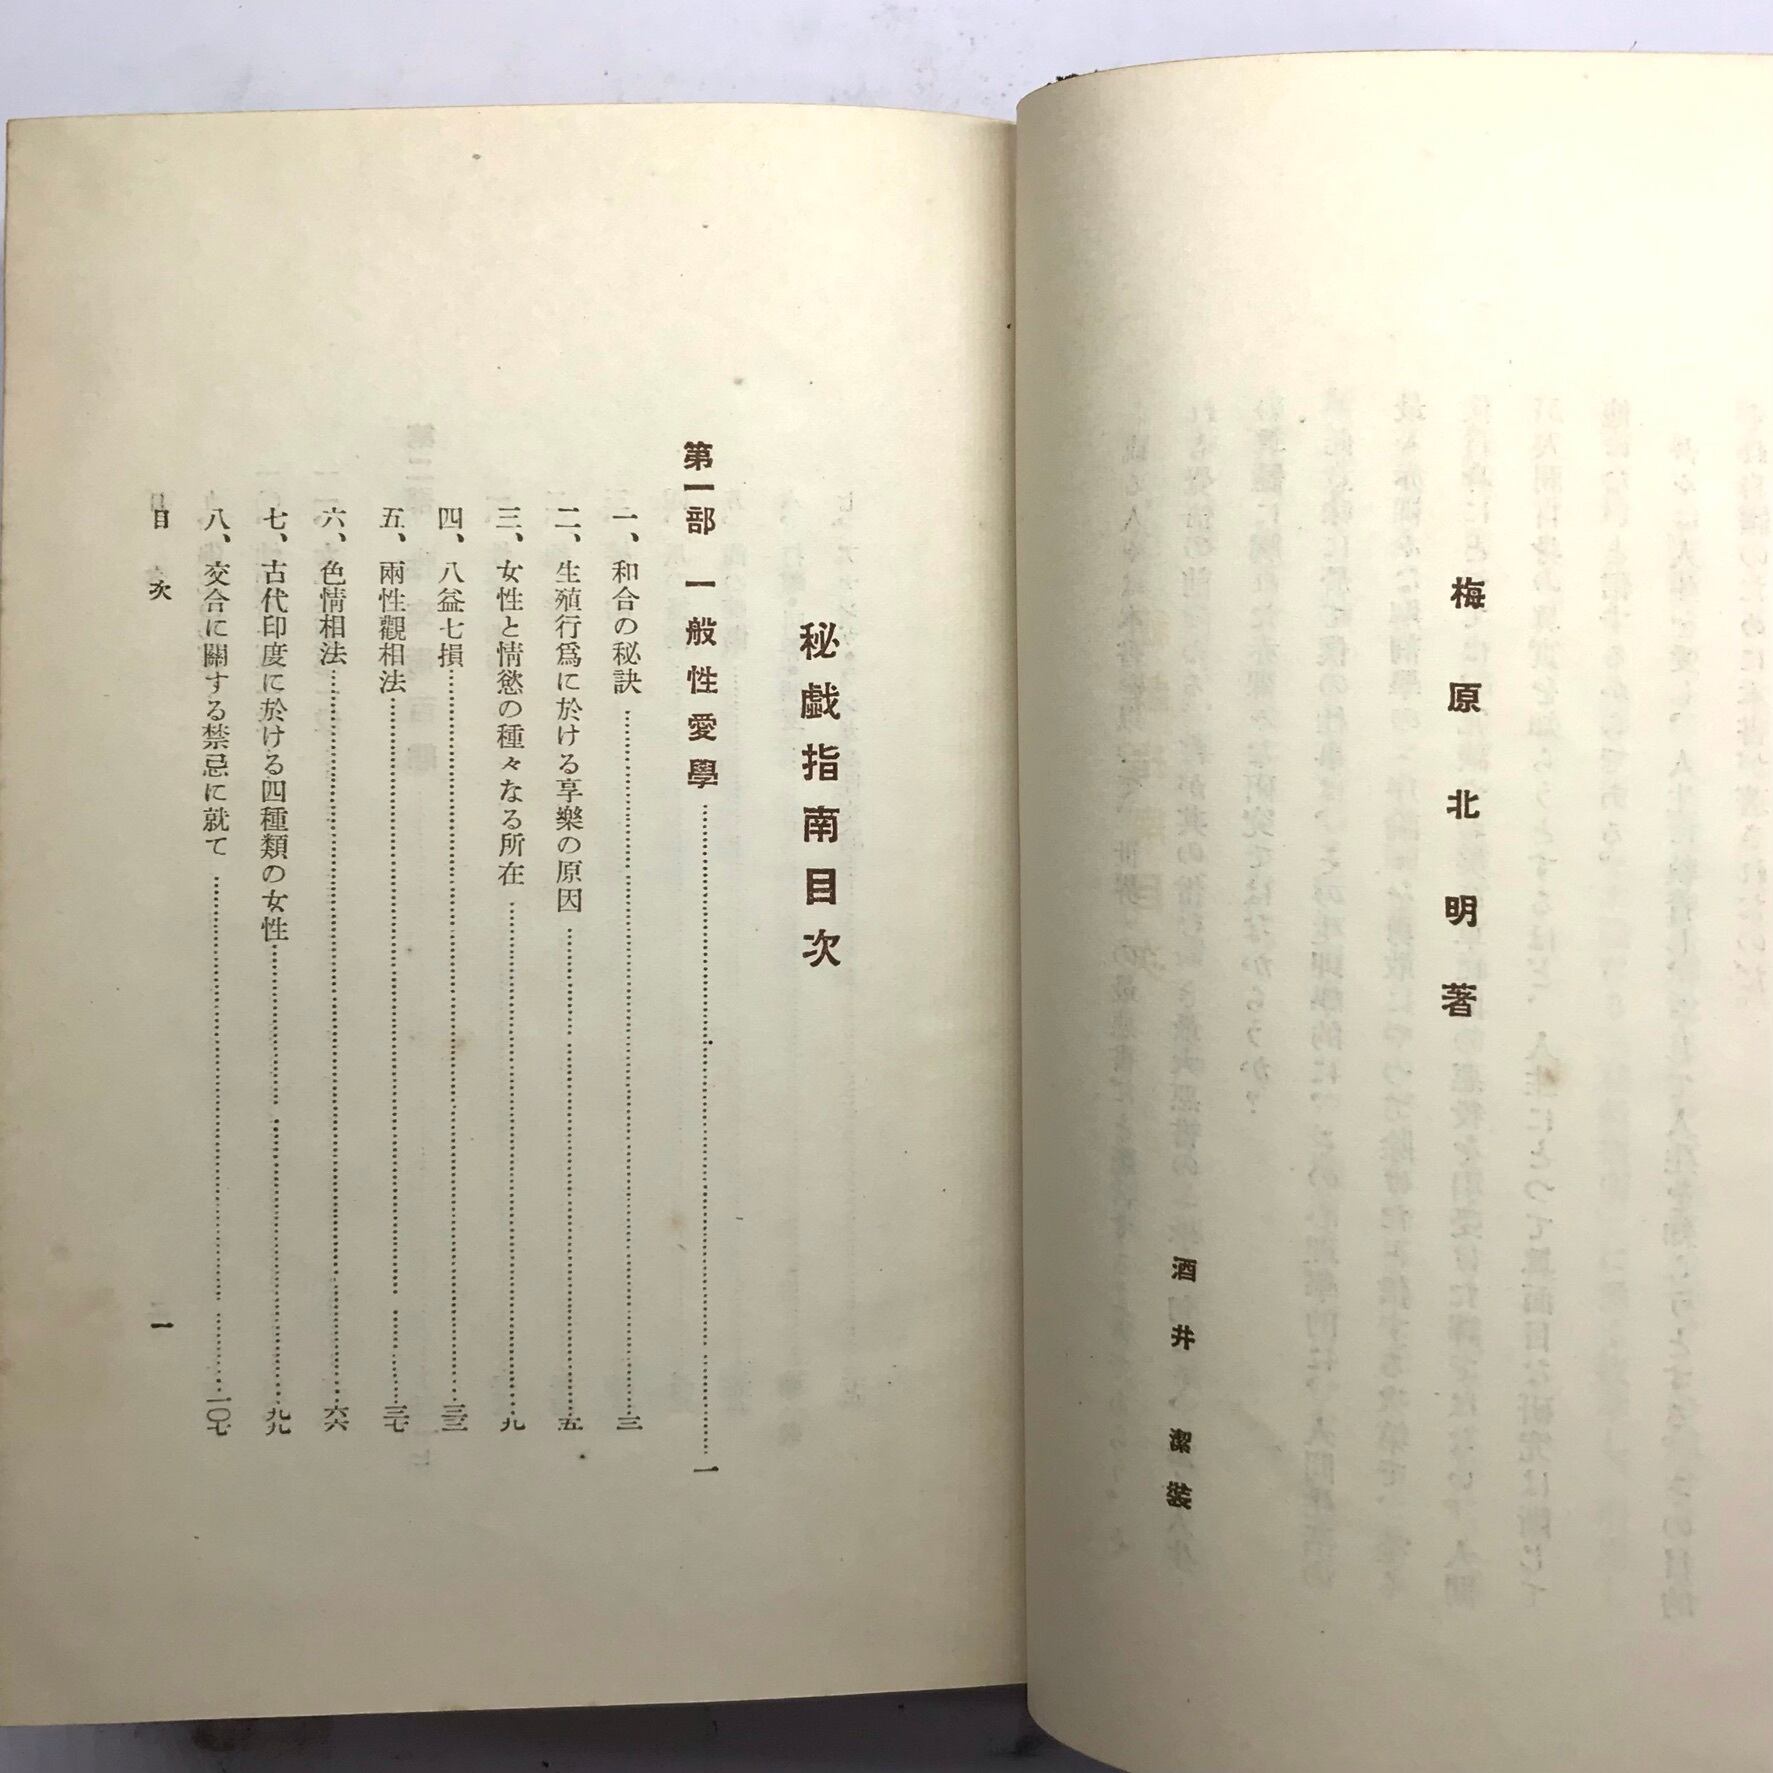 梅原北明著
酒井潔裝
秘戯指南目次
第一部 一般性愛學……一
一、和合の秘訣……三
二、生殖行爲に於ける享樂の原因……五
三、女性と情慾の種々なる所在……九
四、八益七損……三三
五、兩性觀相法……三七
六、色情相法……六六
七、古代印度に於ける四種類の女性……九九
八、交合に關する禁忌に就て……一〇七
目次 一